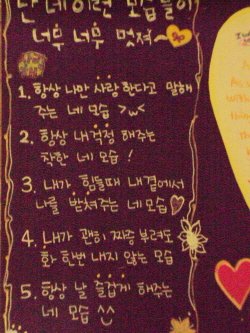 난 네 이런 모습들이
너무 너무 멋져~
1. 항상 나만 사랑한다고 말해
주는 네 모습 >w<
2. 항상 내 걱정 해주는
착한 네 모습!
3. 내가 힘들때 내 곁에서
나를 받쳐주는 네 모습
4. 내가 괜히 짜증 부려도
화 한번 내지 않는 모습
5. 항상 날 즐겁게 해주는
네 모습 ^^